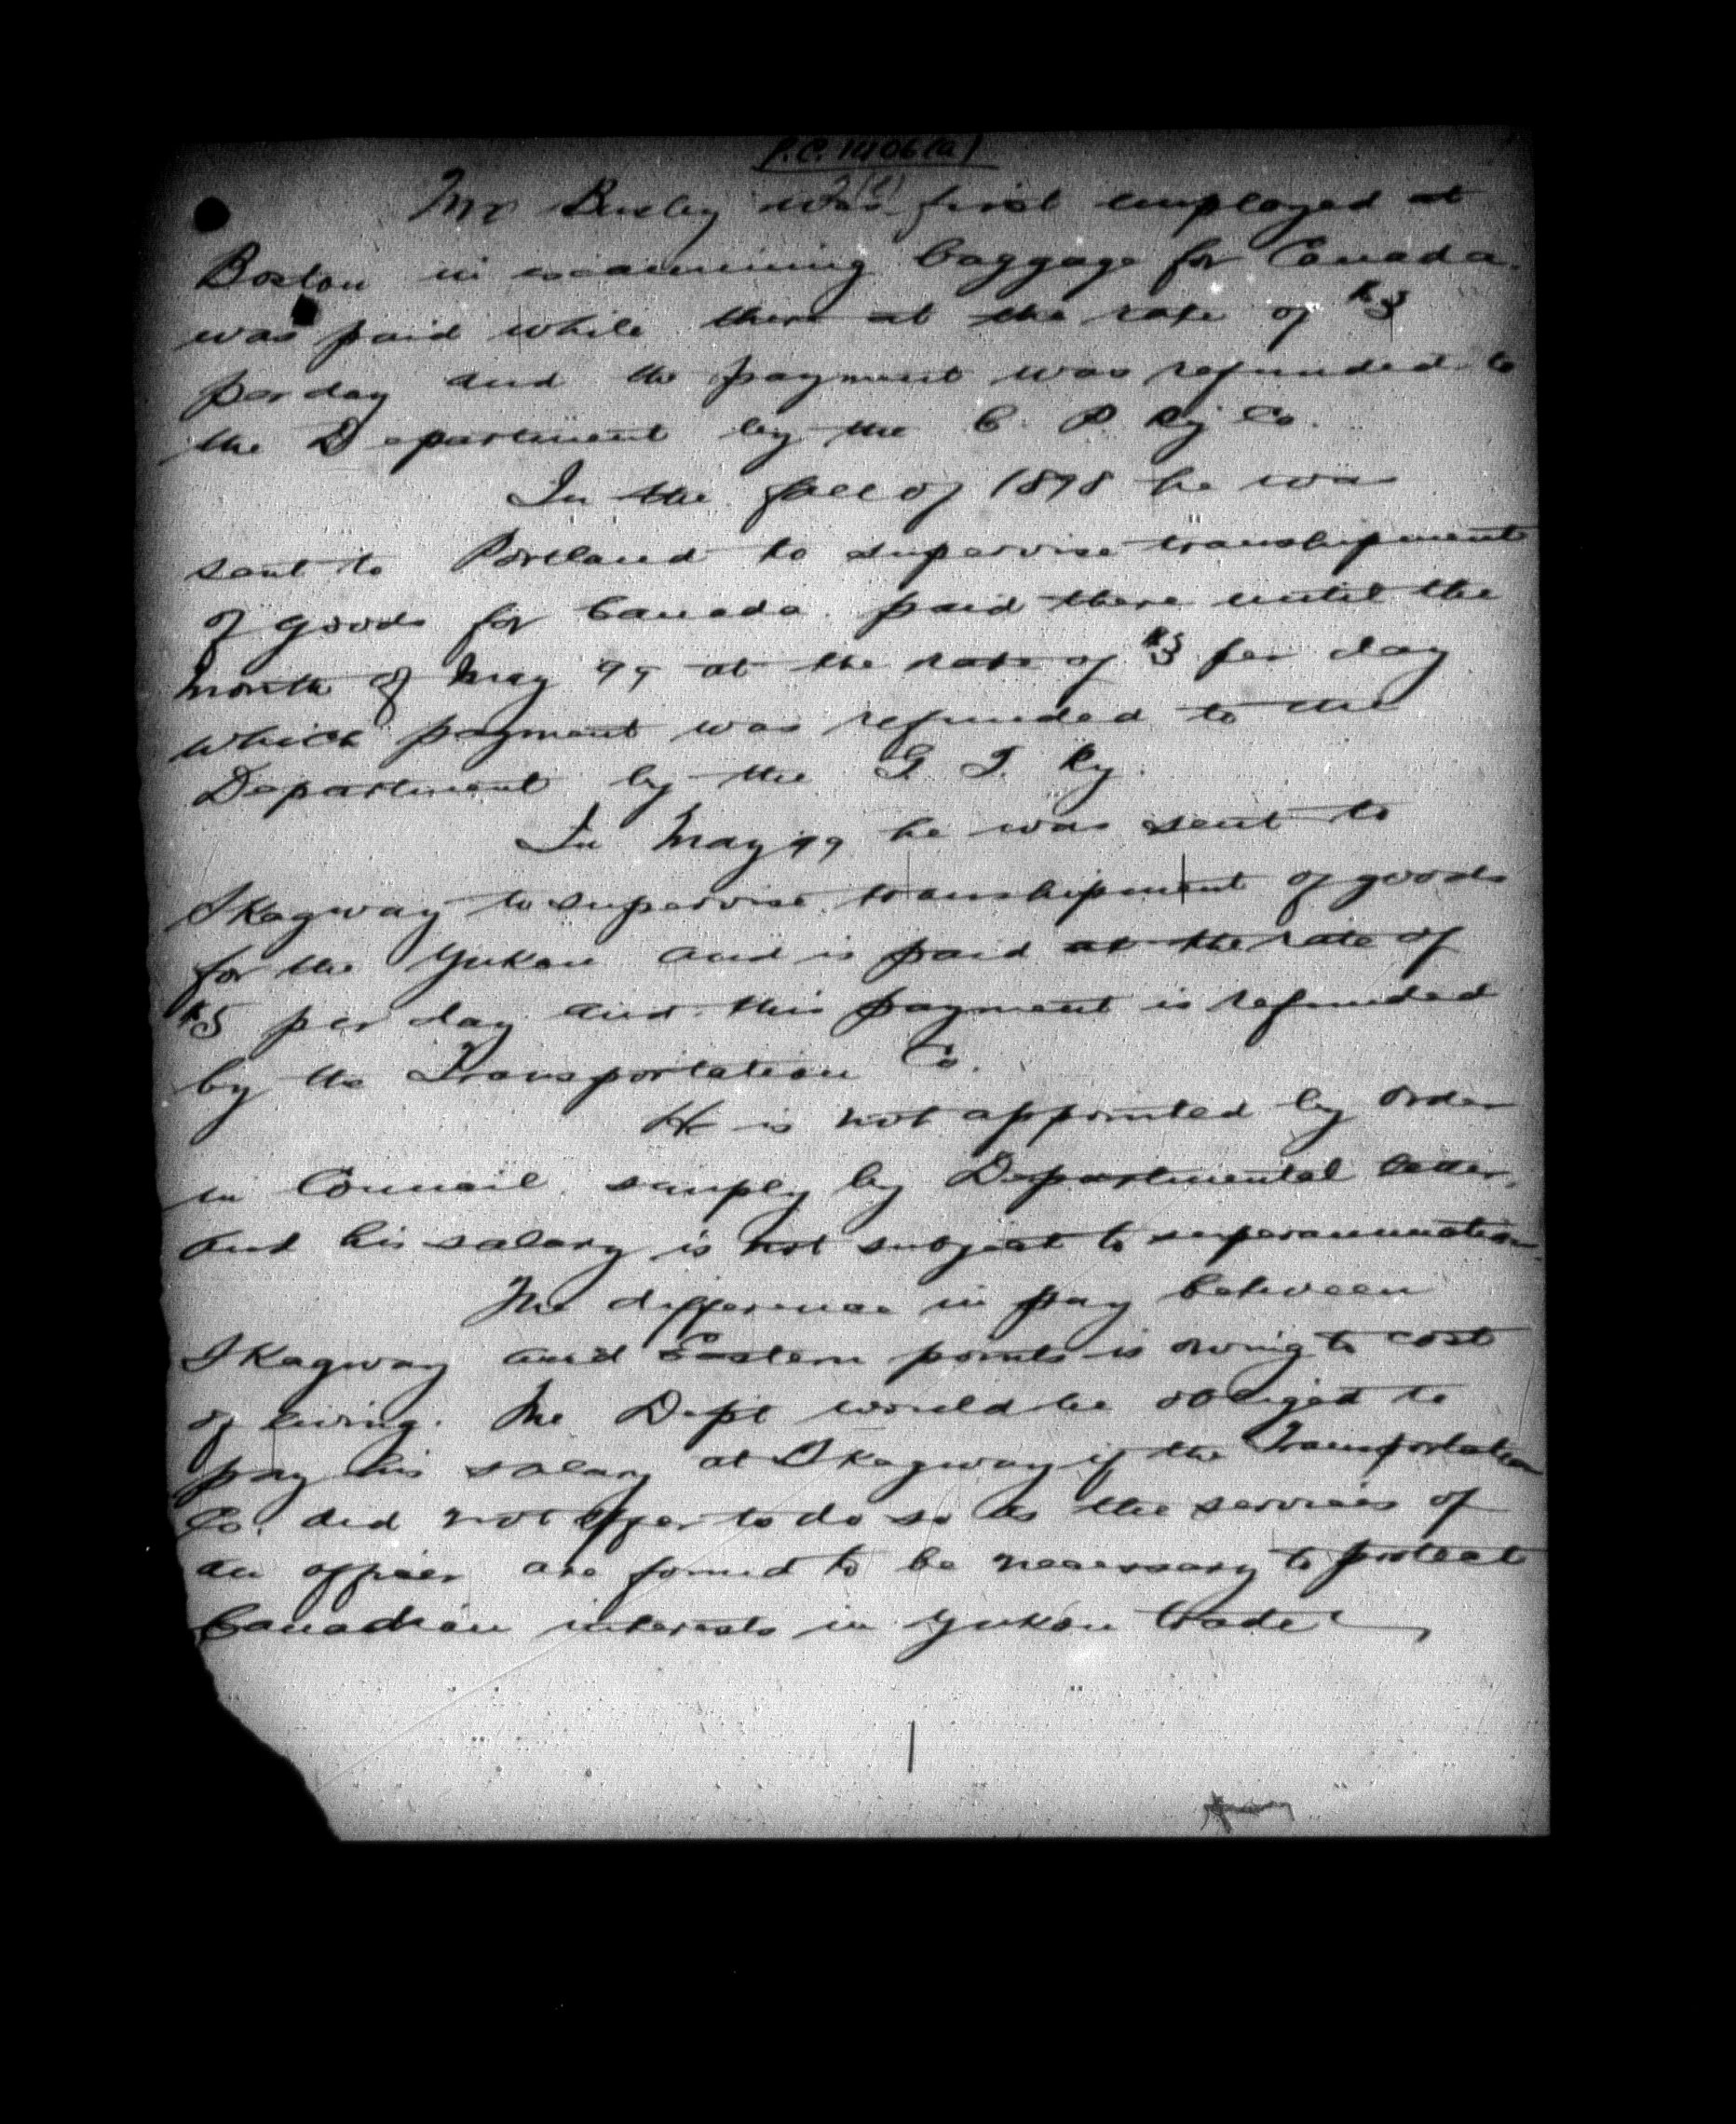 P.C. 1406(a)
Mr Busby was first employed at
Boston in examining baggage for Canada.
was paid while there at the rate of $3
per day and the payment was refunded to
the Department by the C. P. Ry Co.
In the fall of 1898 he was
sent to Portland to supervise transhipment
of goods for Canada. paid there until the
month of May 99 at the rate of $3 per day
which payment was refunded to the
Department by the G. T. Ry.
In May 99 he was sent to
Skagway to supervise transhipment of goods
for the Yukon and is paid at the rate of
$5 per day and this payment is refunded
by the Transportation Co.
He is not appointed by order
in Council, simply by Departmental letter,
and his salary is not subject to superannuation.
The difference in pay between
Skagway and Eastern points is owing to cost
of living. The Dept would be obliged to
pay his salary at Skagway if the Transportation
Co. did not offer to do so as the services of
an officer are found to be necessary to protect
Canadian interests in Yukon trade